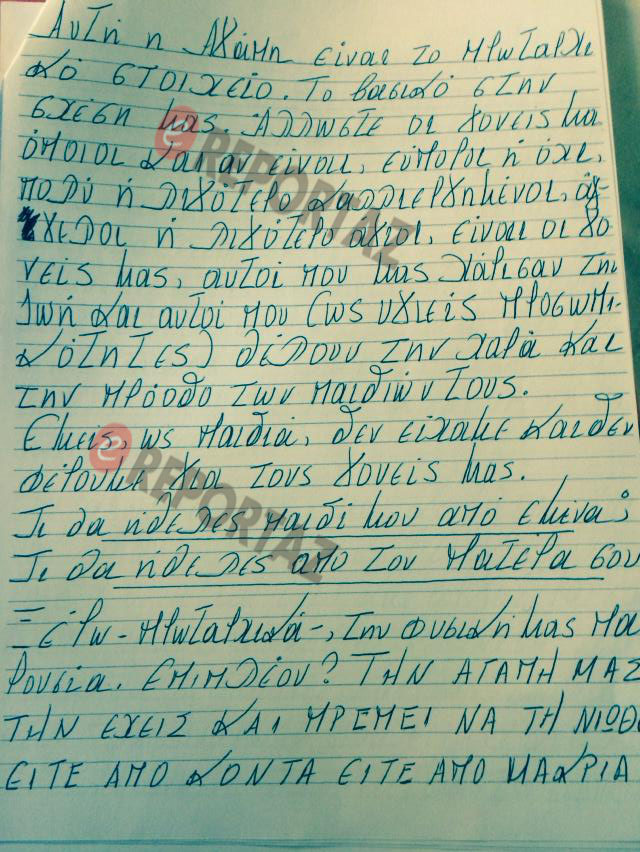 Αυτή η Αγάπη είναι το πρωταρχι
κό στοιχείο. Το βασικό στην
σχέση μας. Άλλωστε οι γονείς μα
όποιοι και αν είναι, εύποροι ή όχι,
πολύ ή λιγότερο καλλιεργημένοι, άγ-
γελοι ή λιγότερο άγιοι, είναι οι γο
νείς μας, αυτοί που μας χάρισαν την
ζωή και αυτοί που (ως υγιείς προσωπι-
κότητες) θέλουν την χαρά και
την πρόοδο των παιδιών τους.
Εμείς, ως παιδιά, δεν είχαμε και δεν
φέρουμε για τους γονείς μας.
Τι θα ήθελες παιδί μου από εμένα;
Τι θα ήθελες απο τον πατέρα σου
Ξέρω - πρωταρχικά -, την φυσική μας πα
ρουσία. Επιπλέον? ΤΗΝ ΑΓΑΠΗ ΜΑΣ
ΤΗΝ ΕΧΕΙΣ ΚΑΙ ΠΡΕΠΕΙ ΝΑ ΤΗ ΝΙΩΘ
ΕΙΤΕ ΑΠΟ ΚΟΝΤΑ ΕΙΤΕ ΑΠΟ ΜΑΚΡΙΑ
e REPORTAZ
e REPORTAZ